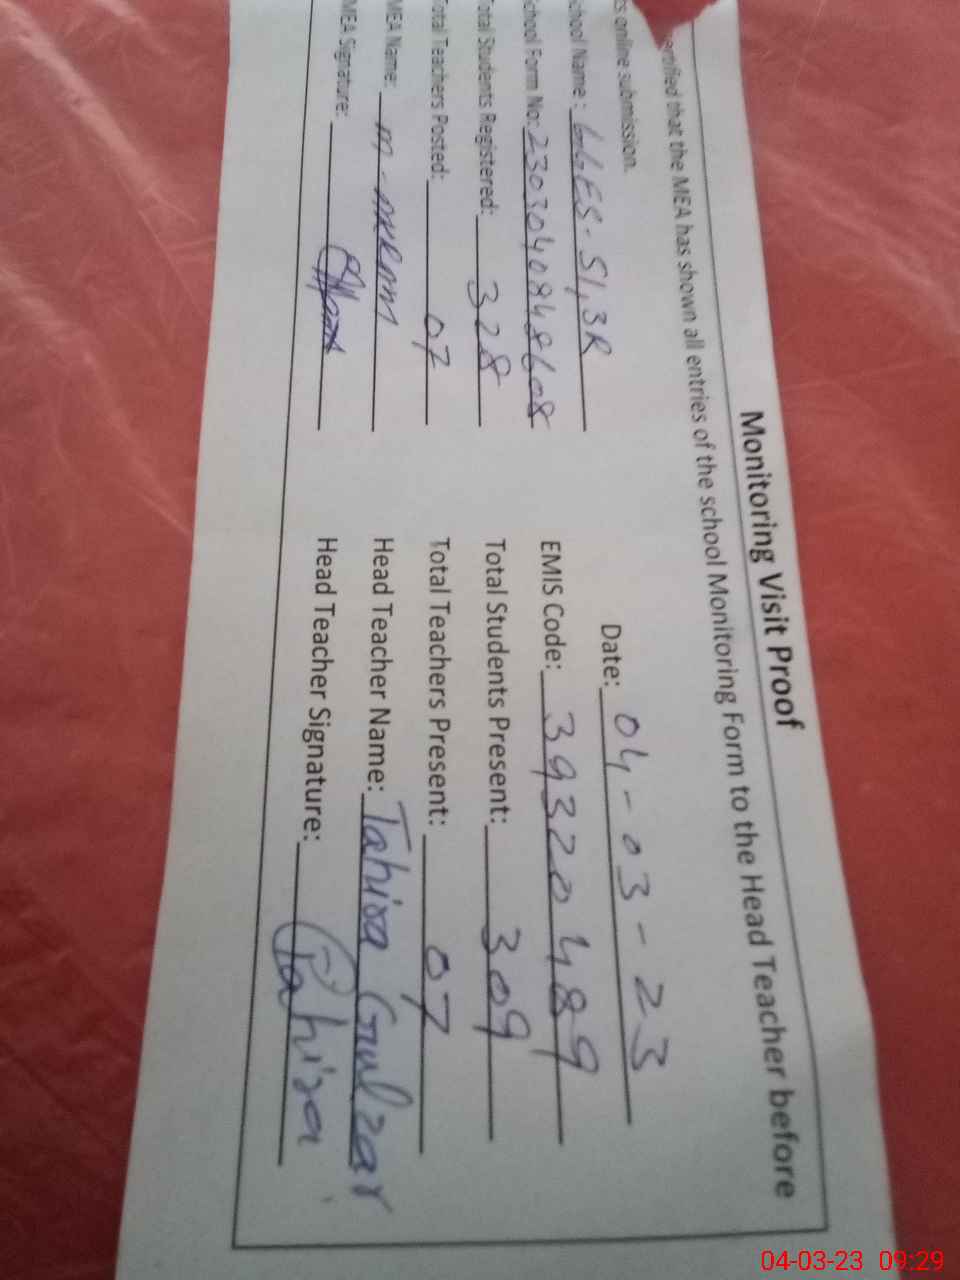 Monitoring Visit Proof
ertified that the MEA has shown all entries of the school Monitoring Form to the Head Teacher before
ts online submission.
Date: 04-03-23
chool Name: GGES-51,3R
chool Form No: 2303040848608 EMIS Code: 39320489
otal Students Registered: 328 Total Students Present: 309
otal Teachers Posted: 07 Total Teachers Present: 07
MEA Name: M- Head Teacher Name: Tahira Gulzar
MEA Signature: Head Teacher Signature: Tahira
04-03-23 09:29